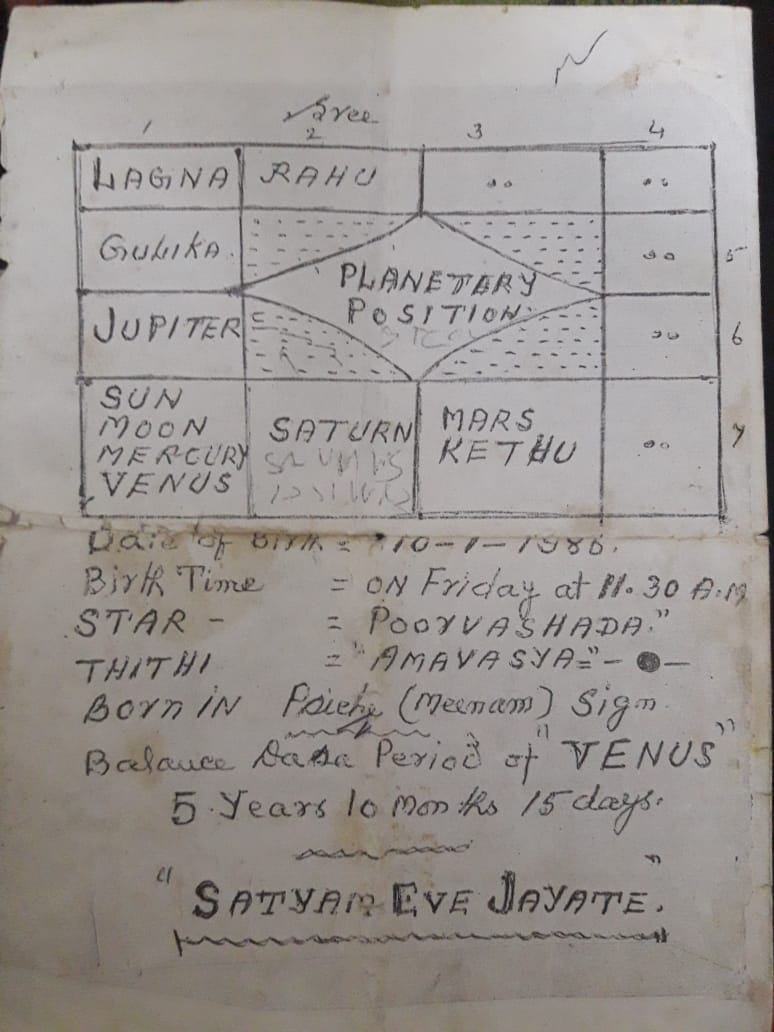 Sree
1 2 3 4
LAGNA RAHU
GULIKA. 5
PLANETARY
POSITION
JUPITER 6
SUN
MOON
MERCURY
VENUS
SATURN
MARS
KETHU
7
Date of Birth = 10-1-1986.
Birth Time = ON Friday at 11.30 A.M
STAR - = POORVASHADA."
THITHI = "AMAVASYA="-●-
BORN IN (Meenam) Sign
Balance Dasa Period of "VENUS"
5 Years 10 Months 15 days.
"SATYAM EVE JAYATE."